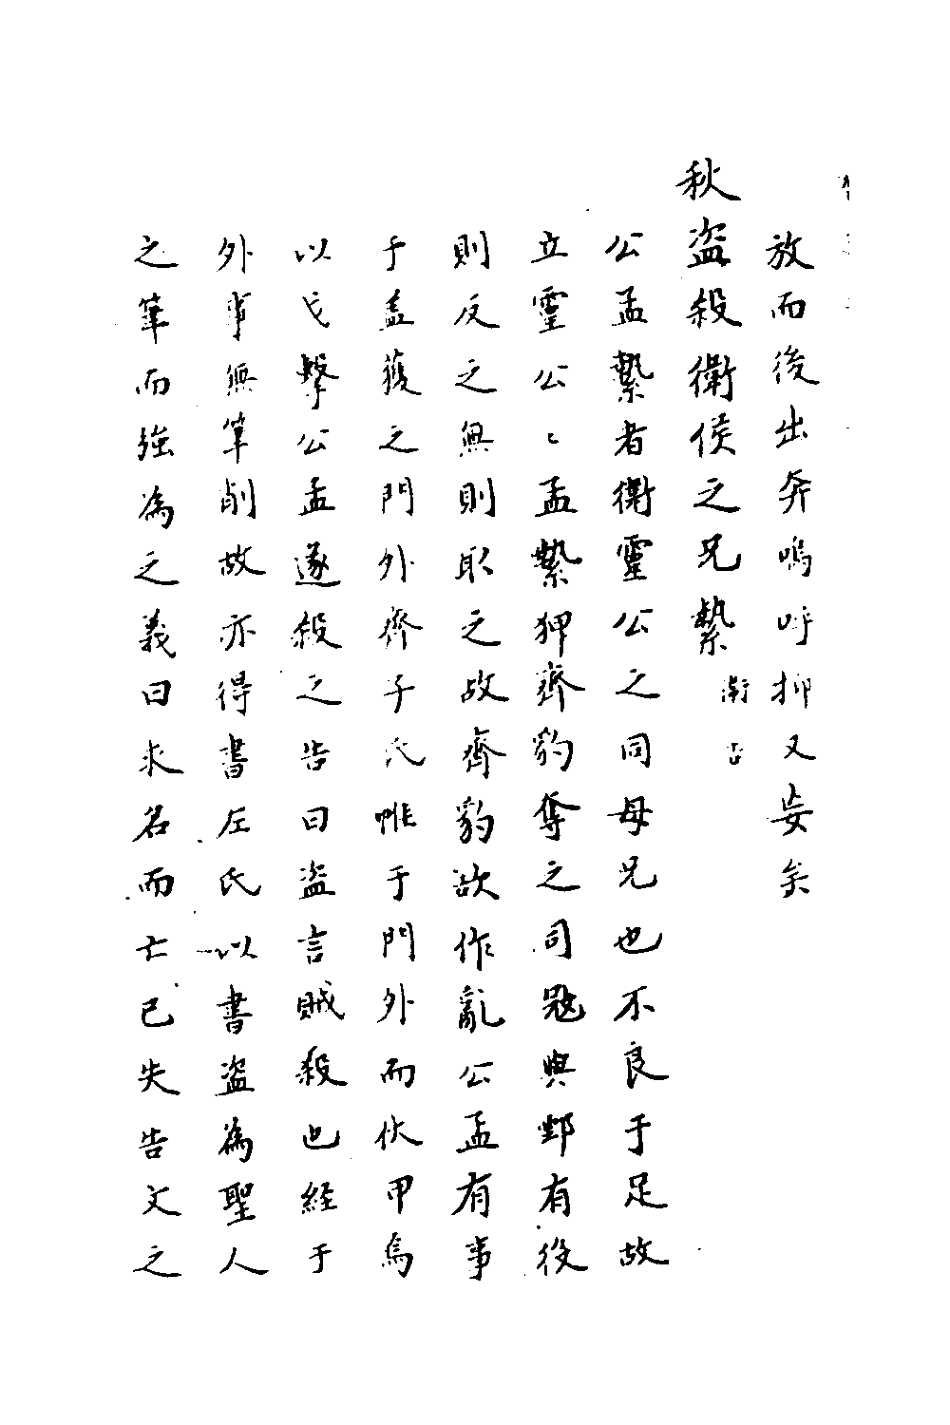 放而後出奔嗚呼抑又妄矣
秋盜殺衛侯之兄縶 衛告
公孟縶者衛靈公之同母兄也不良于足故
立靈公〻孟縶狎齊豹奪之司冦與鄄有役
則反之無則取之故齊豹欲作亂公孟有事
于盖獲之門外齊子氏帷于門外而伏甲焉
以戈擊公孟遂殺之告曰盜言賊殺也經于
外事無筆削故亦得書左氏以書盜為聖人
之筆而強為之義曰求名而亡已失告文之